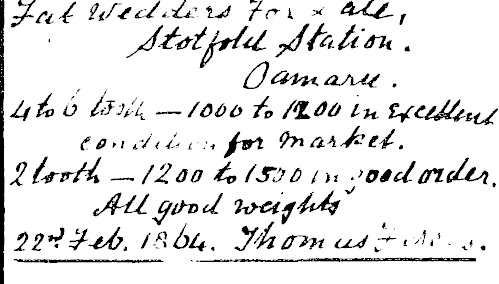 Fat Wedders For Sale,
Stotfold Station.
Oamaru.
4 to 6 tooth — 1000 to 1200 in Excellent
condition for market.
2 tooth — 1200 to 1500 in good order.
All good weights
22nd Feb. 1864. Thomas